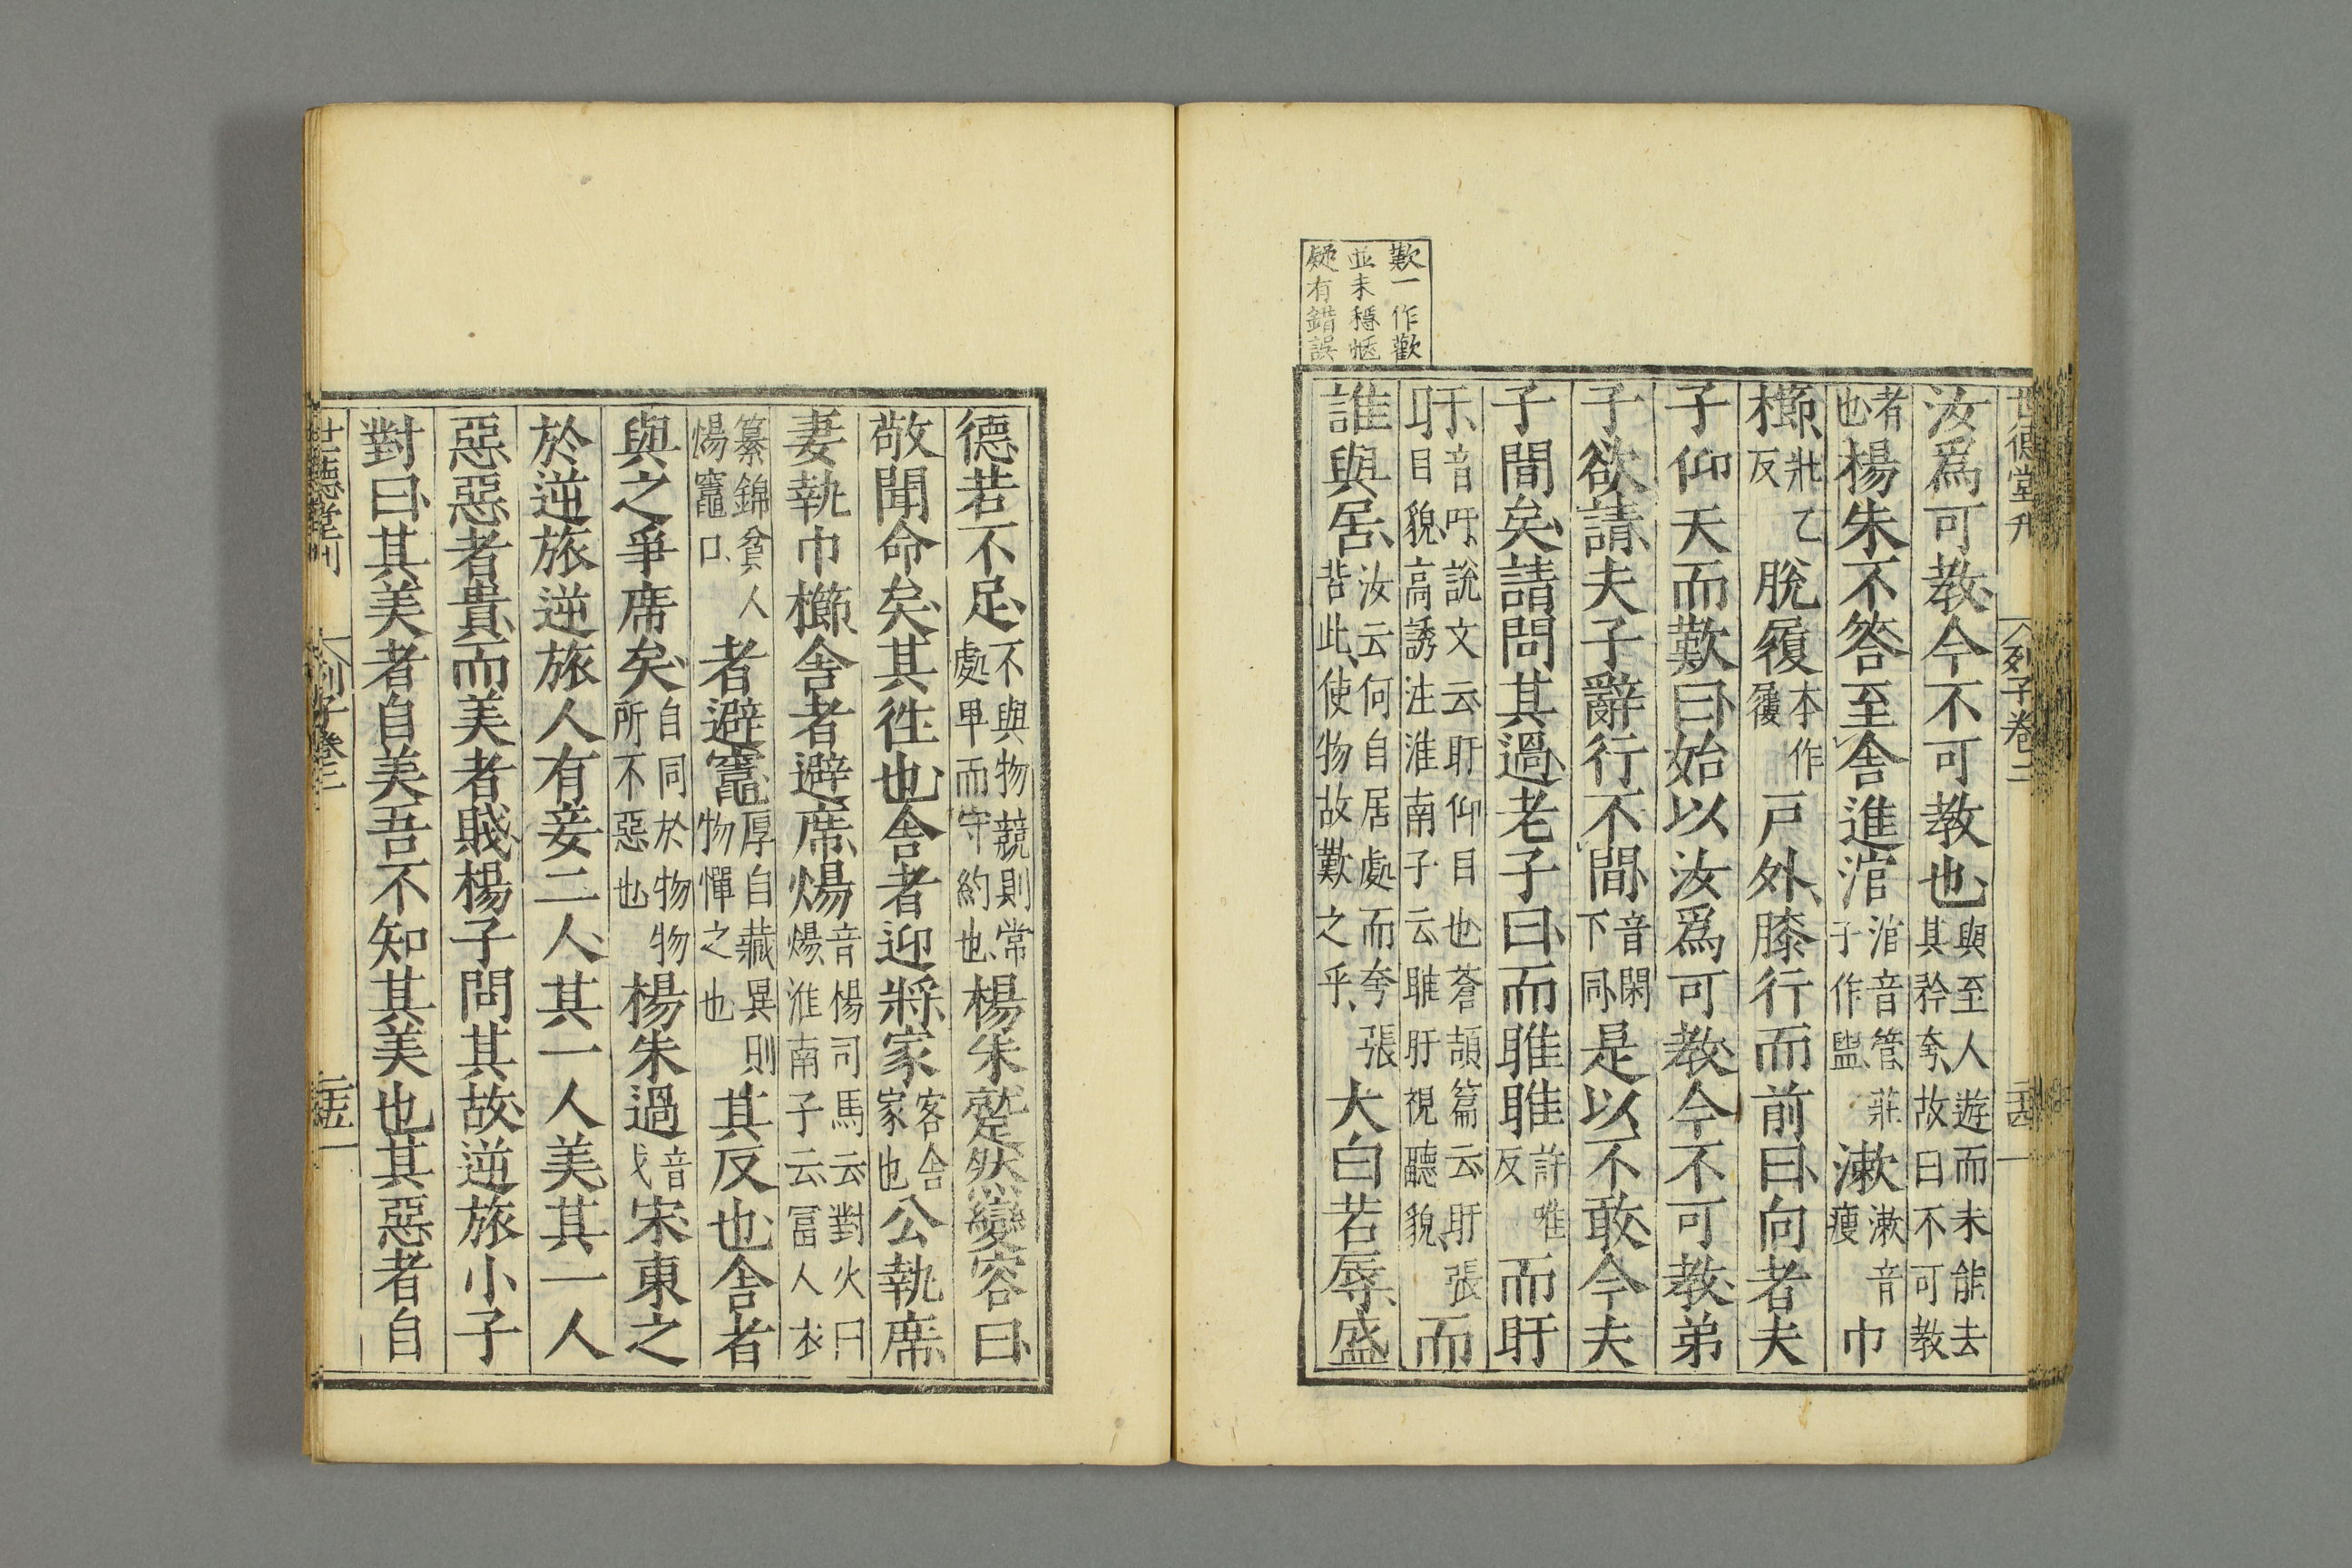 世德堂刊 列子卷二 二十四
汝爲可教今不可教也與至人遊而未能去其矜夸故曰不可教
者也楊朱不答至舍進涫涫音管莊子作盥漱漱音瘦巾
櫛壯乙反脫履本作屨戸外膝行而前曰向者夫
子仰天而歎曰始以汝爲可教今不可教弟
子欲請夫子辭行不間音閑下同是以不敢今夫
子間矣請問其過老子曰而睢睢許唯反而盱
盱音吁說文云盱仰目也蒼頡篇云盱張目貌高誘注淮南子云睢盱視聽貌而
誰與居汝云何自居處而夸張若此使物故歎之乎大白若辱盛
歎一作歡
並未穩愜
疑有錯誤
德若不足不與物競則常處卑而守約也楊朱蹵然變容曰
敬聞命矣其徃也舍者迎將家客舍家也公執席
妻執巾櫛舍者避席煬音楊司馬云對火曰煬淮南子云冨人衣
纂錦貧人煬竈口者避竈厚自藏異則物憚之也其反也舍者
與之爭席矣自同於物物所不惡也楊朱過音戈宋東之
於逆旅逆旅人有妾二人其一人美其一人
惡惡者貴而美者賤楊子問其故逆旅小子
對曰其美者自美吾不知其美也其惡者自
世德堂刊 列子卷二 二十五